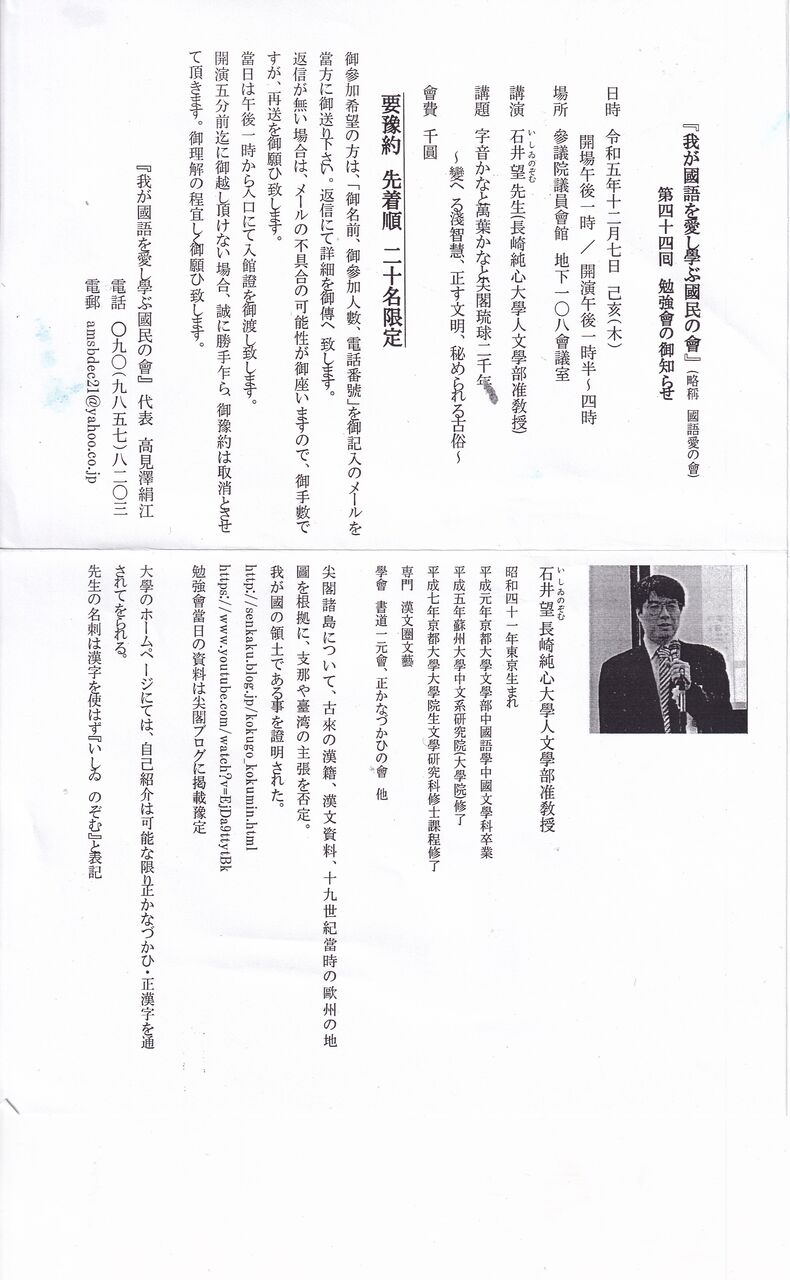 『我が國語を愛し學ぶ國民の會』（略稱　國語愛の會）
第四十四回　勉強會の御知らせ
日時　令和五年十二月七日　己亥（木）
開場午後一時　／　開演午後一時半～四時
場所　參議院議員會館　地下一〇八會議室
講演　石井望先生（長崎純心大學人文學部准敎授）
いしゐのぞむ
講題　字音かなと萬葉かなと尖閣琉球二千年
～變へる淺智慧、正す文明、秘められる古俗～
會費　千圓
要豫約　先着順　二十名限定
御參加希望の方は、「御名前、御參加人數、電話番號」を御記入のメールを
當方に御送り下さい。返信にて詳細を御傳へ致します。
返信が無い場合は、メールの不具合の可能性が御座いますので、御手數で
すが、再送を御願ひ致します。
當日は午後一時から入口にて入館證を御渡し致します。
開演五分前迄に御越し頂けない場合、誠に勝手乍ら、御豫約は取消とさせ
て頂きます。御理解の程宜しく御願ひ致します。
『我が國語を愛し學ぶ國民の會』代表　高見澤絹江
電話　〇九〇（九八五七）八二〇三
電郵　amsbdec21@yahoo.co.jp
石井望　長崎純心大學人文學部准敎授
いしゐのぞむ
昭和四十一年東京生まれ
平成元年京都大學文學部中國語學中國文學科卒業
平成五年蘇州大學中文系研究院（大學院）修了
平成七年京都大學大學院生文學研究科修士課程修了
専門　漢文圈文藝
學會　書道一元會、正かなづかひの會　他
尖閣諸島について、古來の漢籍、漢文資料、十九世紀當時の歐州の地
圖を根拠に、支那や臺湾の主張を否定。
我が國の領土である事を證明された。
http://senkaku.blog.jp/kokugo_kokumin.html
https://www.youtube.com/watch?v=EjDa9ttytBk
勉強會當日の資料は尖閣ブログに掲載豫定
大學のホームページにては、自己紹介は可能な限り正かなづかひ・正漢字を通
されてをられる。
先生の名刺は漢字を使はず『いしゐ　のぞむ』と表記